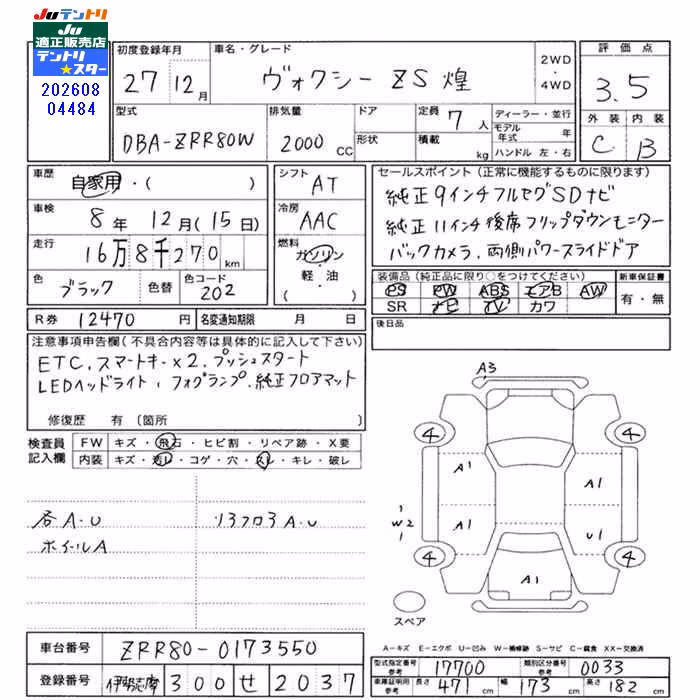 JUテントリ
JU
適正販売店
テントリ
★スター
202608
04484
初度登録年月
27 12月
車名・グレード
ヴォクシー ZS 煌
2WD
・
4WD
評価点
3.5
外装 内装
C B
型式
DBA-ZRR80W
排気量
2000 CC
ドア
形状
定員 7 人
積載 kg
ディーラー・並行
モデル年式 年
ハンドル 左・右
車歴
自家用・( )
車検
8年 12月(15日)
走行
16万8千270 km
色
ブラック
色替
色コード
202
シフト
AT
冷房
AAC
燃料
ガソリン
・
軽・油
( )
セールスポイント(正常に機能するものに限ります)
純正9インチフルセグSDナビ
純正11インチ後席フリップダウンモニター
バックカメラ、両側パワースライドドア
装備品(純正品に限り○をつけてください)
PS PW ABS エアB AW
SR ナビ TV カワ
新車保証書
有・無
後日品
R券 12470円 名変通知期限 月 日
注意事項申告欄(不具合内容等は具体的に記入して下さい)
ETC、スマートキー×2、プッシュスタート
LEDヘッドライト、フォグランプ、純正フロアマット
修復歴 有〔箇所 〕
検査員
記入欄
FW キズ・飛石・ヒビ割・リペア跡・X要
内装 キズ・汚レ・コゲ・穴・スレ・キレ・破レ
各A・U
ホイールA
リアフロアA・U
A3
4
4
A1
A1
W2
A1
U1
4
4
A1
スペア
A=キズ E=エクボ U=凹み W=補修跡 S=サビ C=腐食 XX=交換済
車台番号 ZRR80-0173550
登録番号 伊勢志摩 300 せ 2037
型式指定番号 参考 17700 類別区分番号 参考 0033
車庫証明用 参考 長さ 471 cm 幅 173 cm 高さ 182 cm